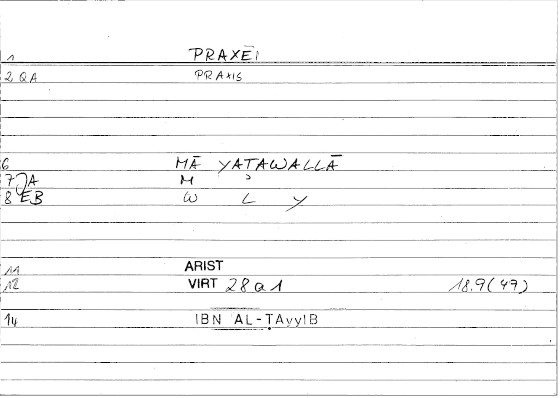 1 PRAXEĪ
2 QA PRAXIS
6 MĀ YATAWALLĀ
7 JA M ʾ
8 EB W L Y
11 ARIST
12 VIRT 28a1 18.9(47)
14 IBN AL-TAyyIB